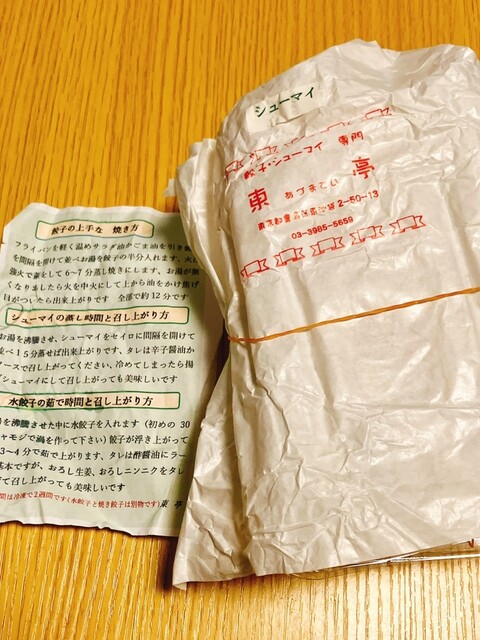 餃子の上手な 焼き方
フライパンを軽く温めサラダ油かごま油を引き
を間隔を開けて並べお湯を餃子の半分入れます、火
強火で蓋をして6~7分蒸し焼きにします、お湯が無
くなりましたら火を中火にして上から油をかけ焦げ
目がついたら出来上がりです 全部で約12分です
シューマイの蒸し時間と召し上がり方
お湯を沸騰させ、シューマイをセイロに間隔を開けて
並べ15分蒸せば出来上がりです、タレは辛子醤油か
ソースで召し上がってください、冷めてしまったら揚
げシューマイにして召し上がっても美味しいです
水餃子の茹で時間と召し上がり方
湯を沸騰させた中に水餃子を入れます(初めの30
シャモジで渦を作って下さい)餃子が浮き上がって
3~4分で茹で上がります、タレは酢醤油にラー
基本ですが、おろし生姜、おろしニンニクをタレ
て召し上がっても美味しいです
間は冷凍で2週間です(水餃子と焼き餃子は別物です) 東亭
シューマイ
餃子・シューマイ 専門
東 亭
あづまてい
東京都豊島区南池袋2-50-13
03-3985-5659